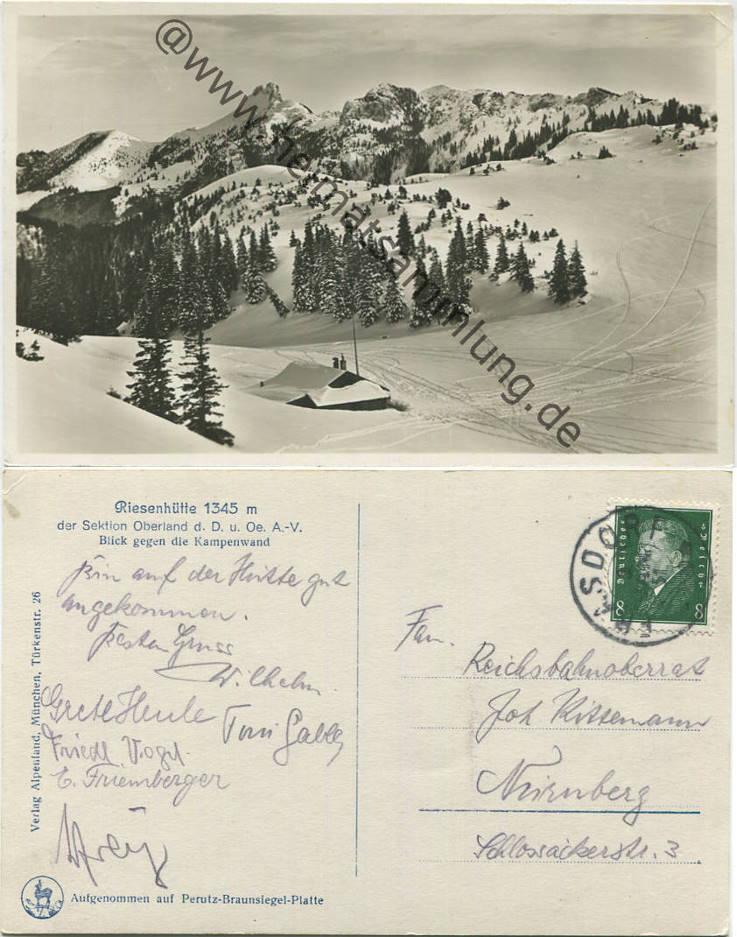 @www.heimatsammlung.de
Riesenhütte 1345 m
der Sektion Oberland d. D. u. Oe. A.-V.
Blick gegen die Kampenwand
Bin auf der Hütte gut
angekommen.
Besten Gruss
Wilhelm.
Grete Henle
Toni
Friedl Vogl
E. Friemberger
Verlag Alpenland, München, Türkenstr. 26
Aufgenommen auf Perutz-Braunsiegel-Platte
Deutsches Reich
8 8
Fam.
Reichsbahnoberrat
Joh Rittemann
Nürnberg
Schlossäckerstr. 3